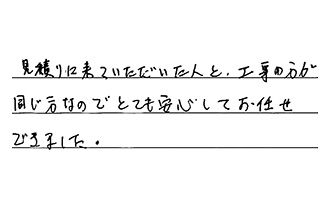 見積りに来ていただいた人と、工事の方が
同じ方なのでとても安心してお任せ
できました。